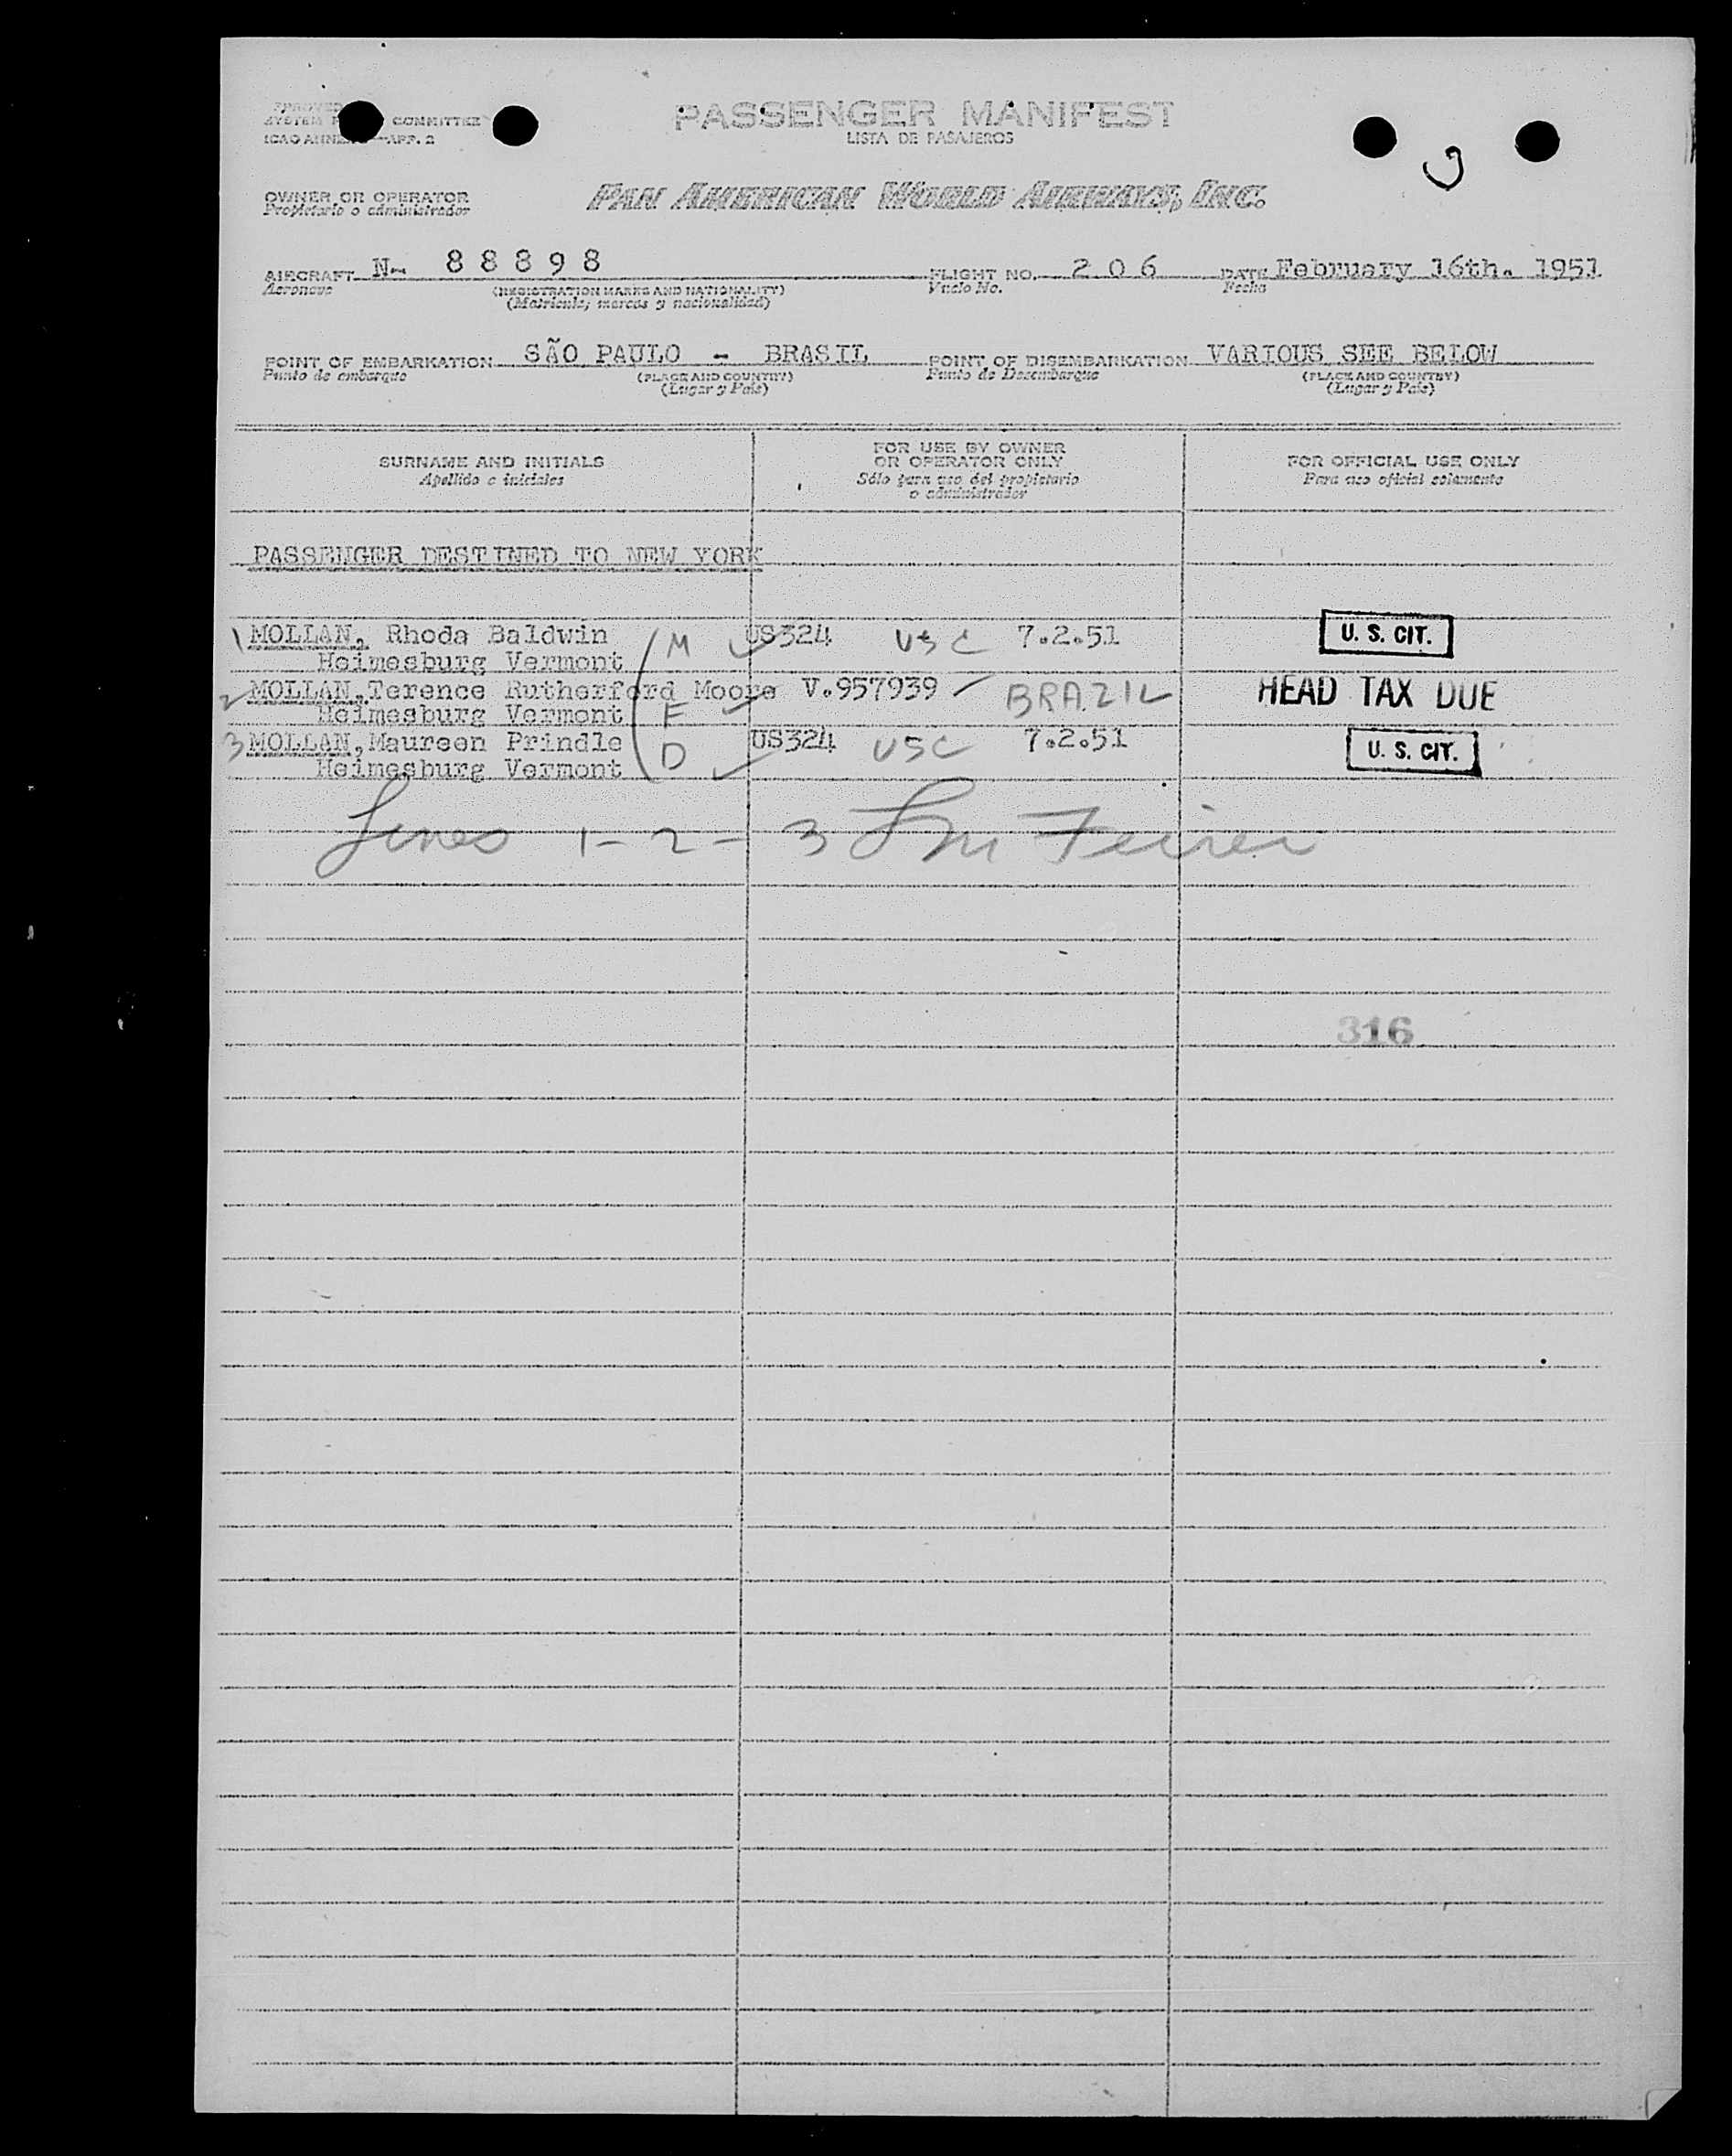 PASSENGER MANIFEST
LISTA DE PASAJEROS
COMMITTEE
APP. 2
OWNER OR OPERATOR
Propietario o administrador
PAN AMERICAN WORLD AIRWAYS, INC.
AIRCRAFT N- 8 8 8 9 8 FLIGHT NO. 2 0 6 DATE February 16th. 1951
Aeronave (REGISTRATION MARKS AND NATIONALITY) Vuelo No. Fecha
(Matricula; marcas y nacionalidad)
POINT OF EMBARKATION SÃO PAULO - BRASIL POINT OF DISEMBARKATION VARIOUS SEE BELOW
Punto de embarque (PLACE AND COUNTRY) Punto de Desembarque (PLACE AND COUNTRY)
(Lugar y País) (Lugar y País)
SURNAME AND INITIALS
Apellido e iniciales
FOR USE BY OWNER
OR OPERATOR ONLY
Sólo para uso del propietario
o administrador
FOR OFFICIAL USE ONLY
Para uso oficial solamente
PASSENGER DESTINED TO NEW YORK
1 MOLLAN, Rhoda Baldwin M US324 USC 7.2.51 U. S. CIT.
Heimesburg Vermont
2 MOLLAN, Terence Rutherford Moore V.957939 BRAZIL HEAD TAX DUE
Heimesburg Vermont F
3 MOLLAN, Maureen Prindle D US324 USC 7.2.51 U. S. CIT.
Heimesburg Vermont
Lines 1-2-3
316